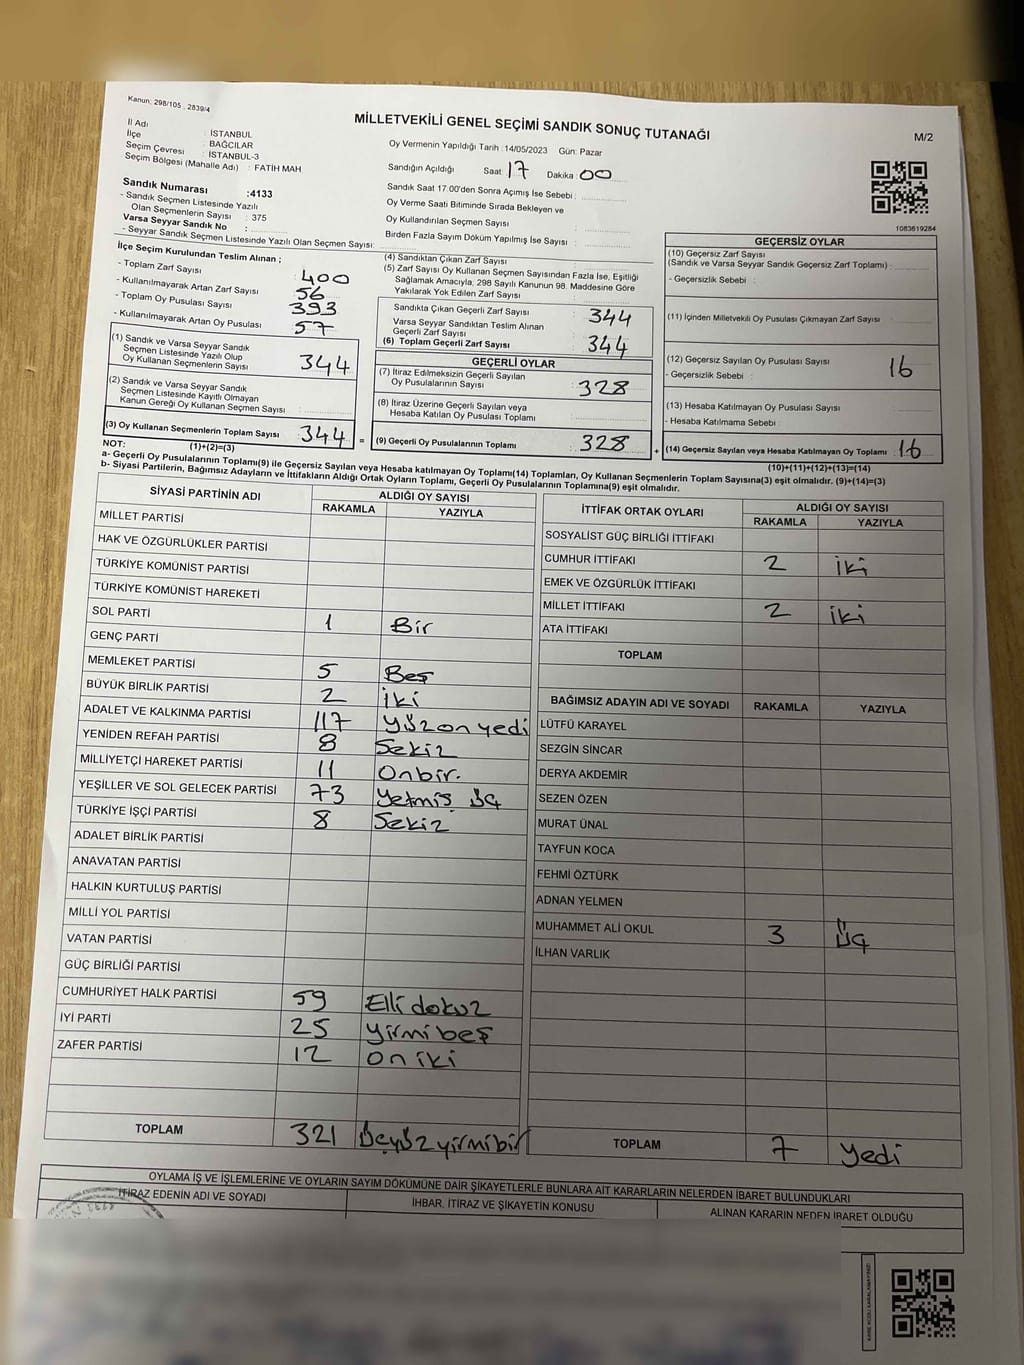 Kanun: 298/105 , 2839/4
MİLLETVEKİLİ GENEL SEÇİMİ SANDIK SONUÇ TUTANAĞI
M/2
İl Adı : İSTANBUL
İlçe : BAĞCILAR
Seçim Çevresi : İSTANBUL-3
Seçim Bölgesi (Mahalle Adı) : FATİH MAH
Sandık Numarası :4133
- Sandık Seçmen Listesinde Yazılı
Olan Seçmenlerin Sayısı : 375
Varsa Seyyar Sandık No :
- Seyyar Sandık Seçmen Listesinde Yazılı Olan Seçmen Sayısı:
Oy Vermenin Yapıldığı Tarih :14/05/2023 Gün: Pazar
Sandığın Açıldığı Saat 17 Dakika : 00
Sandık Saat 17:00'den Sonra Açımış İse Sebebi :
Oy Verme Saati Bitiminde Sırada Bekleyen ve
Oy Kullandırılan Seçmen Sayısı :
Birden Fazla Sayım Döküm Yapılmış İse Sayısı :
1083619284
İlçe Seçim Kurulundan Teslim Alınan ;
- Toplam Zarf Sayısı : 400
- Kullanılmayarak Artan Zarf Sayısı : 56
- Toplam Oy Pusulası Sayısı : 393
- Kullanılmayarak Artan Oy Pusulası : 57
(1) Sandık ve Varsa Seyyar Sandık
Seçmen Listesinde Yazılı Olup
Oy Kullanan Seçmenlerin Sayısı : 344
(2) Sandık ve Varsa Seyyar Sandık
Seçmen Listesinde Kayıtlı Olmayan
Kanun Gereği Oy Kullanan Seçmen Sayısı :
(3) Oy Kullanan Seçmenlerin Toplam Sayısı : 344 =
(4) Sandıktan Çıkan Zarf Sayısı :
(5) Zarf Sayısı Oy Kullanan Seçmen Sayısından Fazla İse, Eşitliği
Sağlamak Amacıyla, 298 Sayılı Kanunun 98. Maddesine Göre
Yakılarak Yok Edilen Zarf Sayısı :
Sandıkta Çıkan Geçerli Zarf Sayısı : 344
Varsa Seyyar Sandıktan Teslim Alınan
Geçerli Zarf Sayısı :
(6) Toplam Geçerli Zarf Sayısı : 344
GEÇERLİ OYLAR
(7) İtiraz Edilmeksizin Geçerli Sayılan
Oy Pusulalarının Sayısı : 328
(8) İtiraz Üzerine Geçerli Sayılan veya
Hesaba Katılan Oy Pusulası Toplamı :
(9) Geçerli Oy Pusulalarının Toplamı : 328 +
GEÇERSİZ OYLAR
(10) Geçersiz Zarf Sayısı
(Sandık ve Varsa Seyyar Sandık Geçersiz Zarf Toplamı) :
- Geçersizlik Sebebi :
(11) İçinden Milletvekili Oy Pusulası Çıkmayan Zarf Sayısı :
(12) Geçersiz Sayılan Oy Pusulası Sayısı : 16
- Geçersizlik Sebebi :
(13) Hesaba Katılmayan Oy Pusulası Sayısı :
- Hesaba Katılmama Sebebi :
(14) Geçersiz Sayılan veya Hesaba Katılmayan Oy Toplamı : 16
NOT: (1)+(2)=(3)
(10)+(11)+(12)+(13)=(14)
a- Geçerli Oy Pusulalarının Toplamı(9) ile Geçersiz Sayılan veya Hesaba katılmayan Oy Toplamı(14) Toplamları, Oy Kullanan Seçmenlerin Toplam Sayısına(3) eşit olmalıdır. (9)+(14)=(3)
b- Siyasi Partilerin, Bağımsız Adayların ve İttifakların Aldığı Ortak Oyların Toplamı, Geçerli Oy Pusulalarının Toplamına(9) eşit olmalıdır.
SİYASİ PARTİNİN ADI ALDIĞI OY SAYISI
RAKAMLA YAZIYLA
MİLLET PARTİSİ
HAK VE ÖZGÜRLÜKLER PARTİSİ
TÜRKİYE KOMÜNİST PARTİSİ
TÜRKİYE KOMÜNİST HAREKETİ
SOL PARTİ 1 Bir
GENÇ PARTİ
MEMLEKET PARTİSİ 5 Beş
BÜYÜK BİRLİK PARTİSİ 2 İki
ADALET VE KALKINMA PARTİSİ 117 Yüz on yedi
YENİDEN REFAH PARTİSİ 8 Sekiz
MİLLİYETÇİ HAREKET PARTİSİ 11 Onbir.
YEŞİLLER VE SOL GELECEK PARTİSİ 73 Yetmiş üç
TÜRKİYE İŞÇİ PARTİSİ 8 Sekiz
ADALET BİRLİK PARTİSİ
ANAVATAN PARTİSİ
HALKIN KURTULUŞ PARTİSİ
MİLLİ YOL PARTİSİ
VATAN PARTİSİ
GÜÇ BİRLİĞİ PARTİSİ
CUMHURİYET HALK PARTİSİ 59 Elli dokuz
İYİ PARTİ 25 Yirmi beş
ZAFER PARTİSİ 12 On iki
TOPLAM 321 Üçyüz yirmi bir
İTTİFAK ORTAK OYLARI ALDIĞI OY SAYISI
RAKAMLA YAZIYLA
SOSYALİST GÜÇ BİRLİĞİ İTTİFAKI
CUMHUR İTTİFAKI 2 İki
EMEK VE ÖZGÜRLÜK İTTİFAKI
MİLLET İTTİFAKI 2 İki
ATA İTTİFAKI
TOPLAM
BAĞIMSIZ ADAYIN ADI VE SOYADI RAKAMLA YAZIYLA
LÜTFÜ KARAYEL
SEZGİN SİNCAR
DERYA AKDEMİR
SEZEN ÖZEN
MURAT ÜNAL
TAYFUN KOCA
FEHMİ ÖZTÜRK
ADNAN YELMEN
MUHAMMET ALİ OKUL 3 Üç
İLHAN VARLIK
TOPLAM 7 Yedi
OYLAMA İŞ VE İŞLEMLERİNE VE OYLARIN SAYIM DÖKÜMÜNE DAİR ŞİKAYETLERLE BUNLARA AİT KARARLARIN NELERDEN İBARET BULUNDUKLARI
İTİRAZ EDENİN ADI VE SOYADI İHBAR, İTİRAZ VE ŞİKAYETİN KONUSU ALINAN KARARIN NEDEN İBARET OLDUĞU
KARE KODU KARALAMAYINIZ!